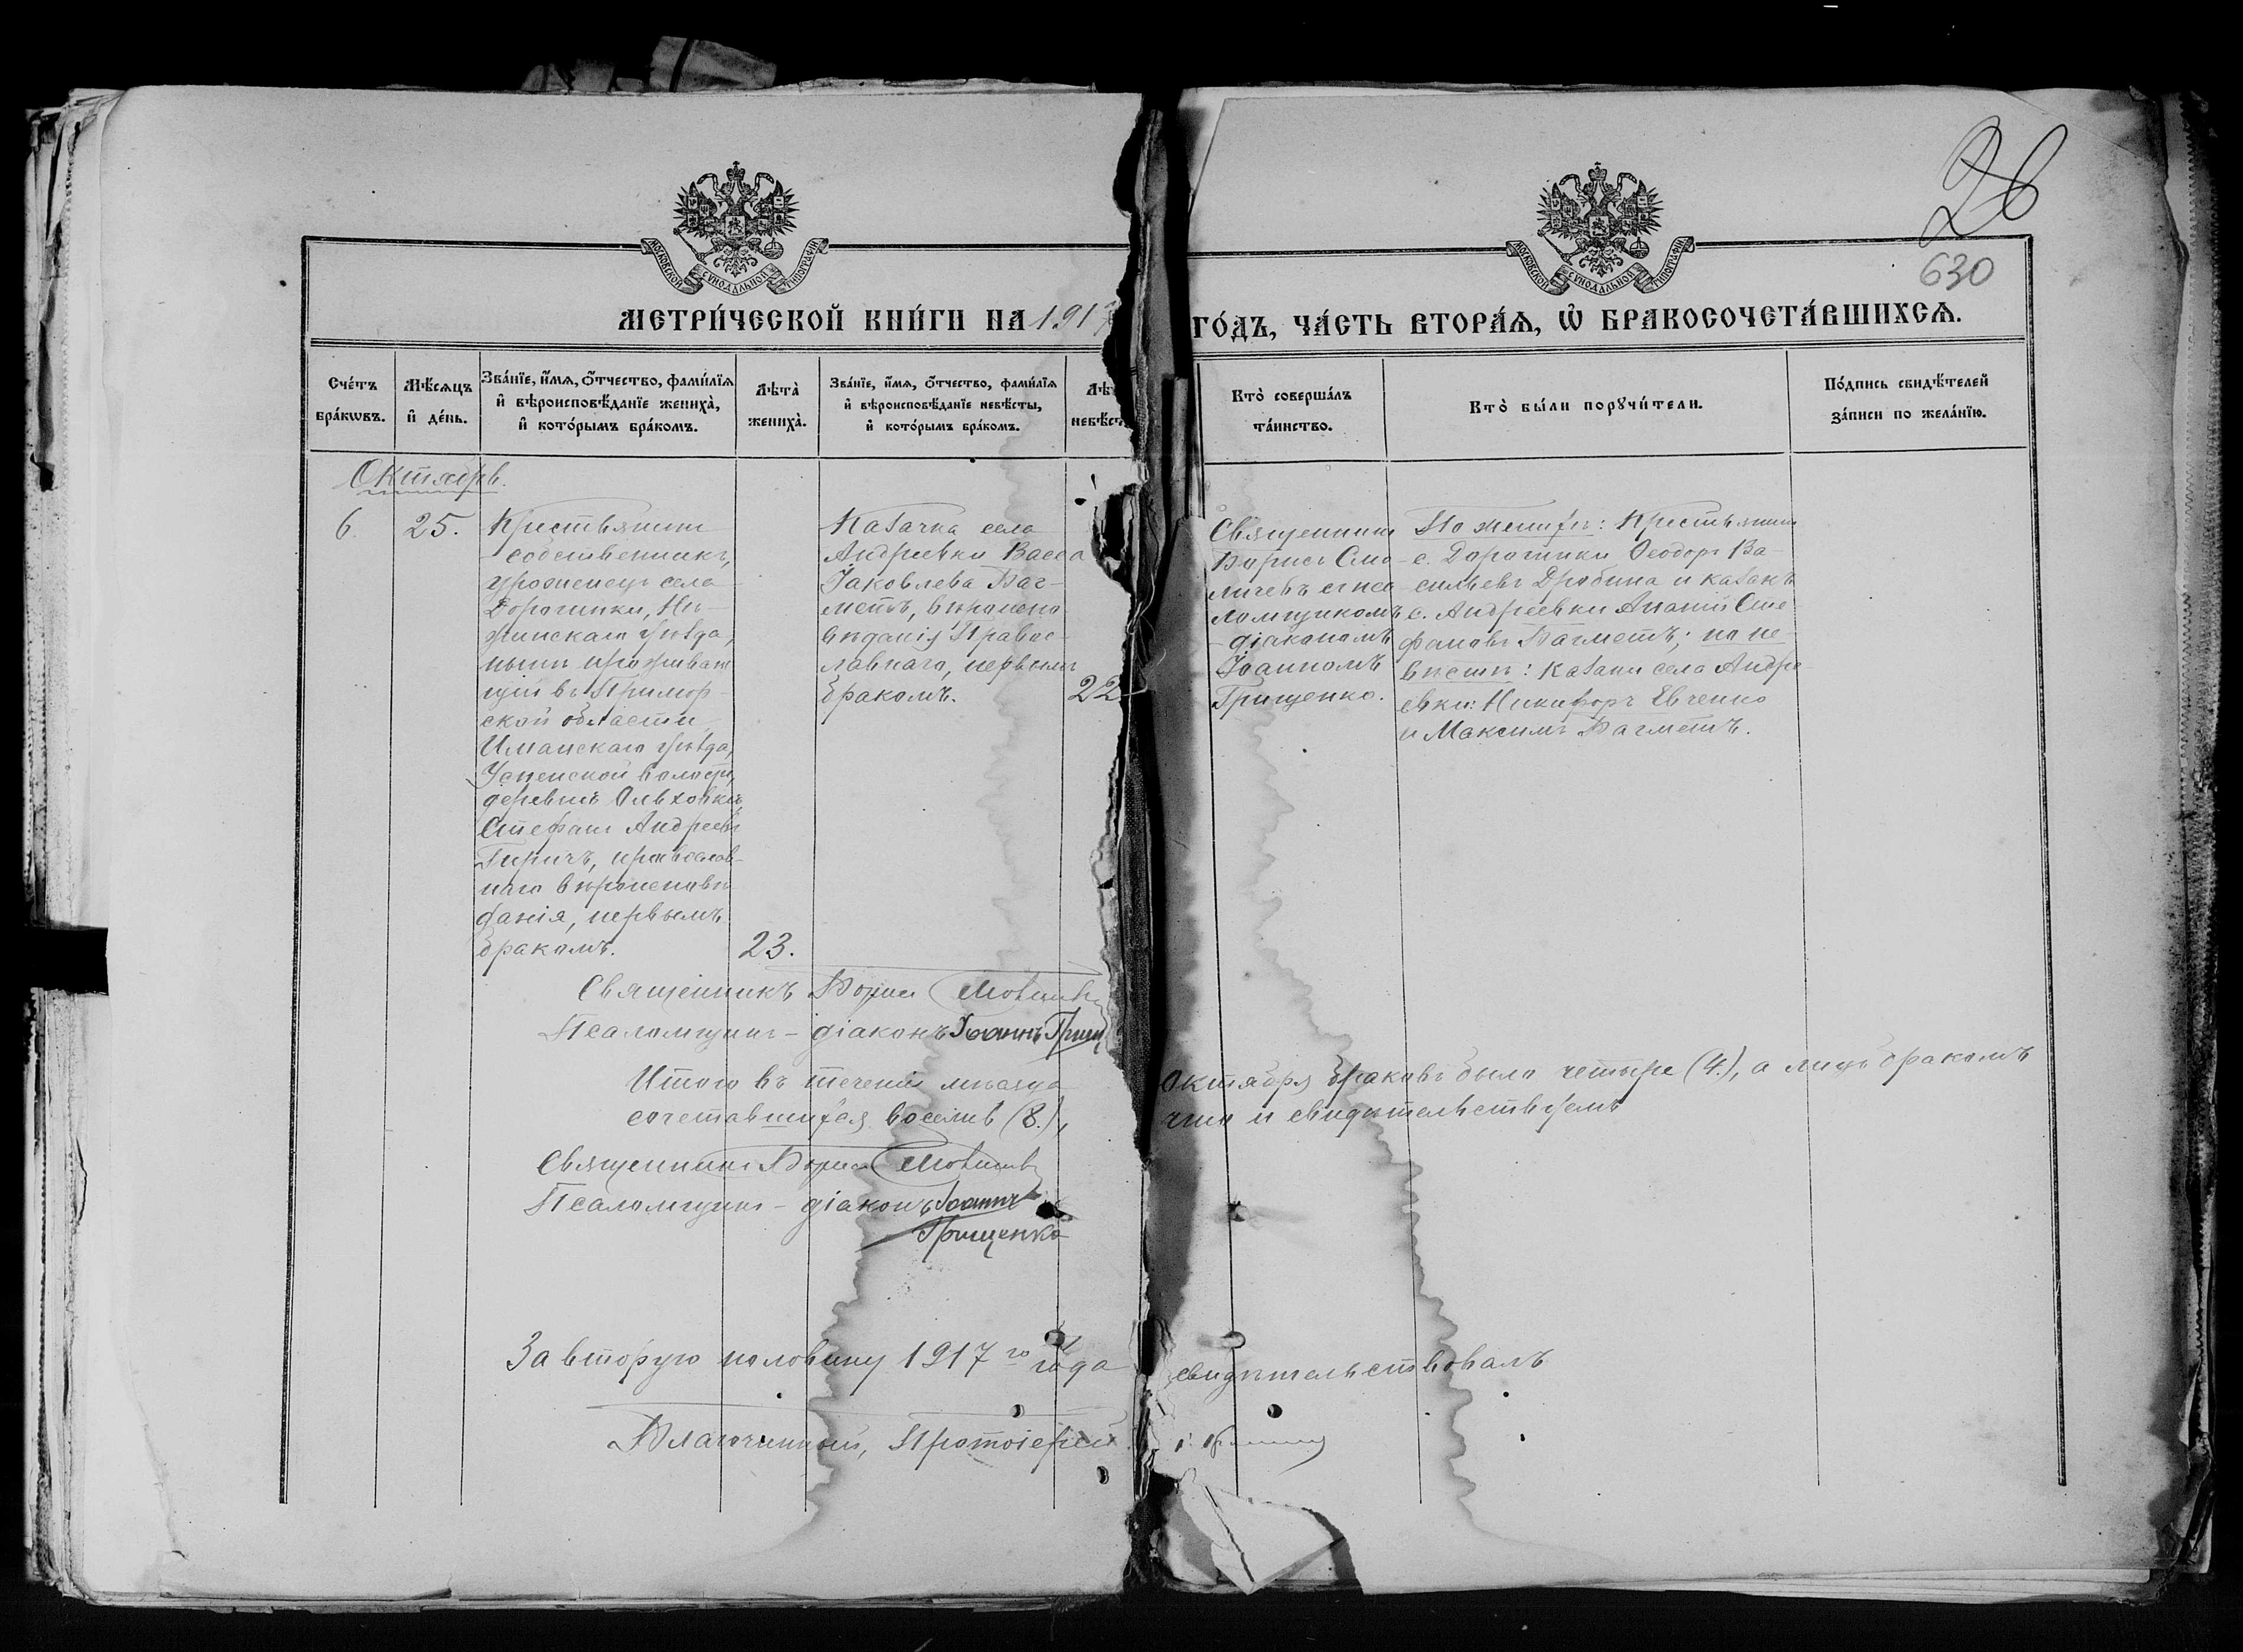 26
630
МОСКОВСКОЙ СѴНОДАЛЬНОЙ ТИПОГРАФІИ
МОСКОВСКОЙ СѴНОДАЛЬНОЙ ТИПОГРАФІИ
МЕТРИ́ЧЕСКОЙ КНИ́ГИ НА 1917
ГО́ДЪ, ЧА́СТЬ ВТОРА́Ѧ, Ѽ БРАКОСОЧЕТА́ВШИХСѦ.
Сче́тъ
бра́кѡвъ.
Мѣ́сѧцъ
и де́нь.
Зва́нїе, и́мѧ, ѻ́тчество, фами́лїѧ
и вѣроисповѣ́данїе жениха̀,
и кото́рымъ бра́комъ.
Лѣ́та̀
жениха̀.
Зва́нїе, и́мѧ, ѻ́тчество, фами́лїѧ
и вѣроисповѣ́данїе невѣ́сты,
и кото́рымъ бра́комъ.
Лѣ
невѣ́ст
Кто̀ соверша́лъ
та́инство.
Кто̀ бы́ли порꙋчи́тели.
По́дпись свидѣ́телей
за́писи по жела́нїю.
Октябрь.
6. 25.
Крестьянинъ
собственникъ,
уроженецъ села
Дорогинки, Нѣ-
жинскаго уѣзда,
нынѣ проживаю
щій въ Примор-
ской области
Иманскаго уѣзда,
Успенской волости,
деревнѣ Ольховкѣ
Стефанъ Андреевъ
Гиричъ, православ-
наго вѣроисповѣ
данія, первымъ
бракомъ.
23.
Казачка села
Андреевки Васса
Іаковлева Баг-
метъ, вѣроиспо
вѣданія Правос-
лавнаго, первымъ
бракомъ.
22
Священникъ
Борисъ Смо-
личевъ съ пса
ломщикомъ
-діакономъ
Іоанномъ
Грищенко.
По женихѣ: Крестьянинъ
с. Дорогинки Ѳеодоръ Ва-
сильевъ Дробина и казакъ
с. Андреевки Ананій Сте
фановъ Багметъ; по не-
вѣстѣ: казаки села Андре-
евки: Никифоръ Евченко
и Максимъ Багметъ.
Священникъ Борисъ Смоличевъ
Псаломщикъ - діаконъ Іоаннъ Грищ
Итого въ теченіи мѣсяца Октября браковъ было четыре (4.), а лицъ бракомъ
сочетавшихся восемь (8.), чпо и свидѣтельствуемъ
Священникъ Борисъ Смоличевъ
Псаломщикъ - діаконъ Іоаннъ
Грищенко
За вторую половину 1917го года свидѣтельствовалъ
Благочинный, Протоіерей